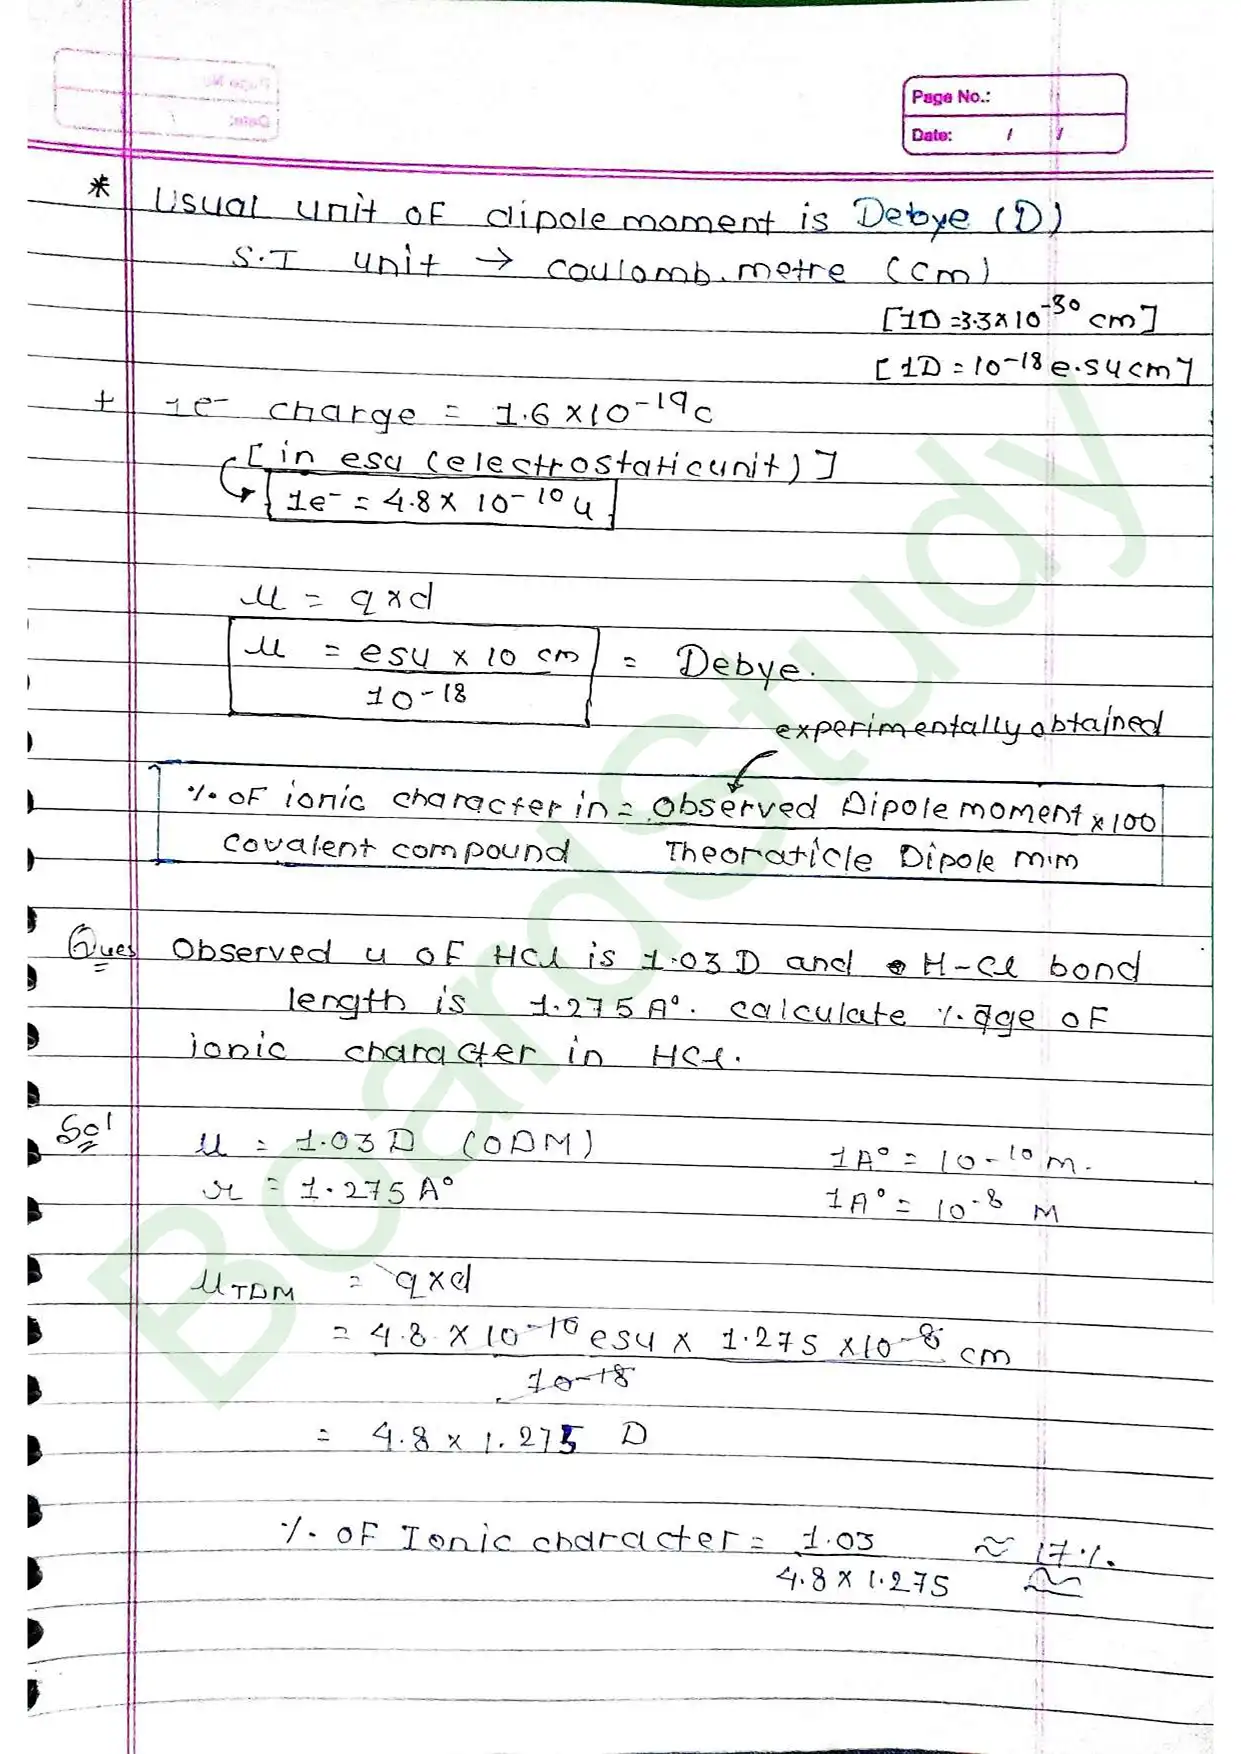 Page No.:
Date: / /
* Usual unit of dipole moment is Debye (D)
S.I unit → coulomb.metre (cm)
[1D = 3.3 x 10⁻³⁰ cm]
[1D = 10⁻¹⁸ e.su cm]
+ 1e⁻ charge = 1.6 x 10⁻¹⁹ C
[in esu (electrostatic unit)]
1e⁻ = 4.8 x 10⁻¹⁰ u
μ = q x d
μ = esu x 10 cm = Debye.
10⁻¹⁸
experimentally obtained
% of ionic character in = observed Dipole moment x 100
covalent compound Theoraticle Dipole m.m
Ques Observed u of HCl is 1.03 D and H-Cl bond
length is 1.275 A°. calculate %age of
ionic character in HCl.
Sol μ = 1.03 D (ODM) 1A° = 10⁻¹⁰ m.
r = 1.275 A° 1A° = 10⁻⁸ M
μTDM = q x d
= 4.8 x 10⁻¹⁰ esu x 1.275 x 10⁻⁸ cm
10⁻¹⁸
= 4.8 x 1.275 D
% of Ionic character = 1.03 ≈ 17%.
4.8 x 1.275
BoardStudy